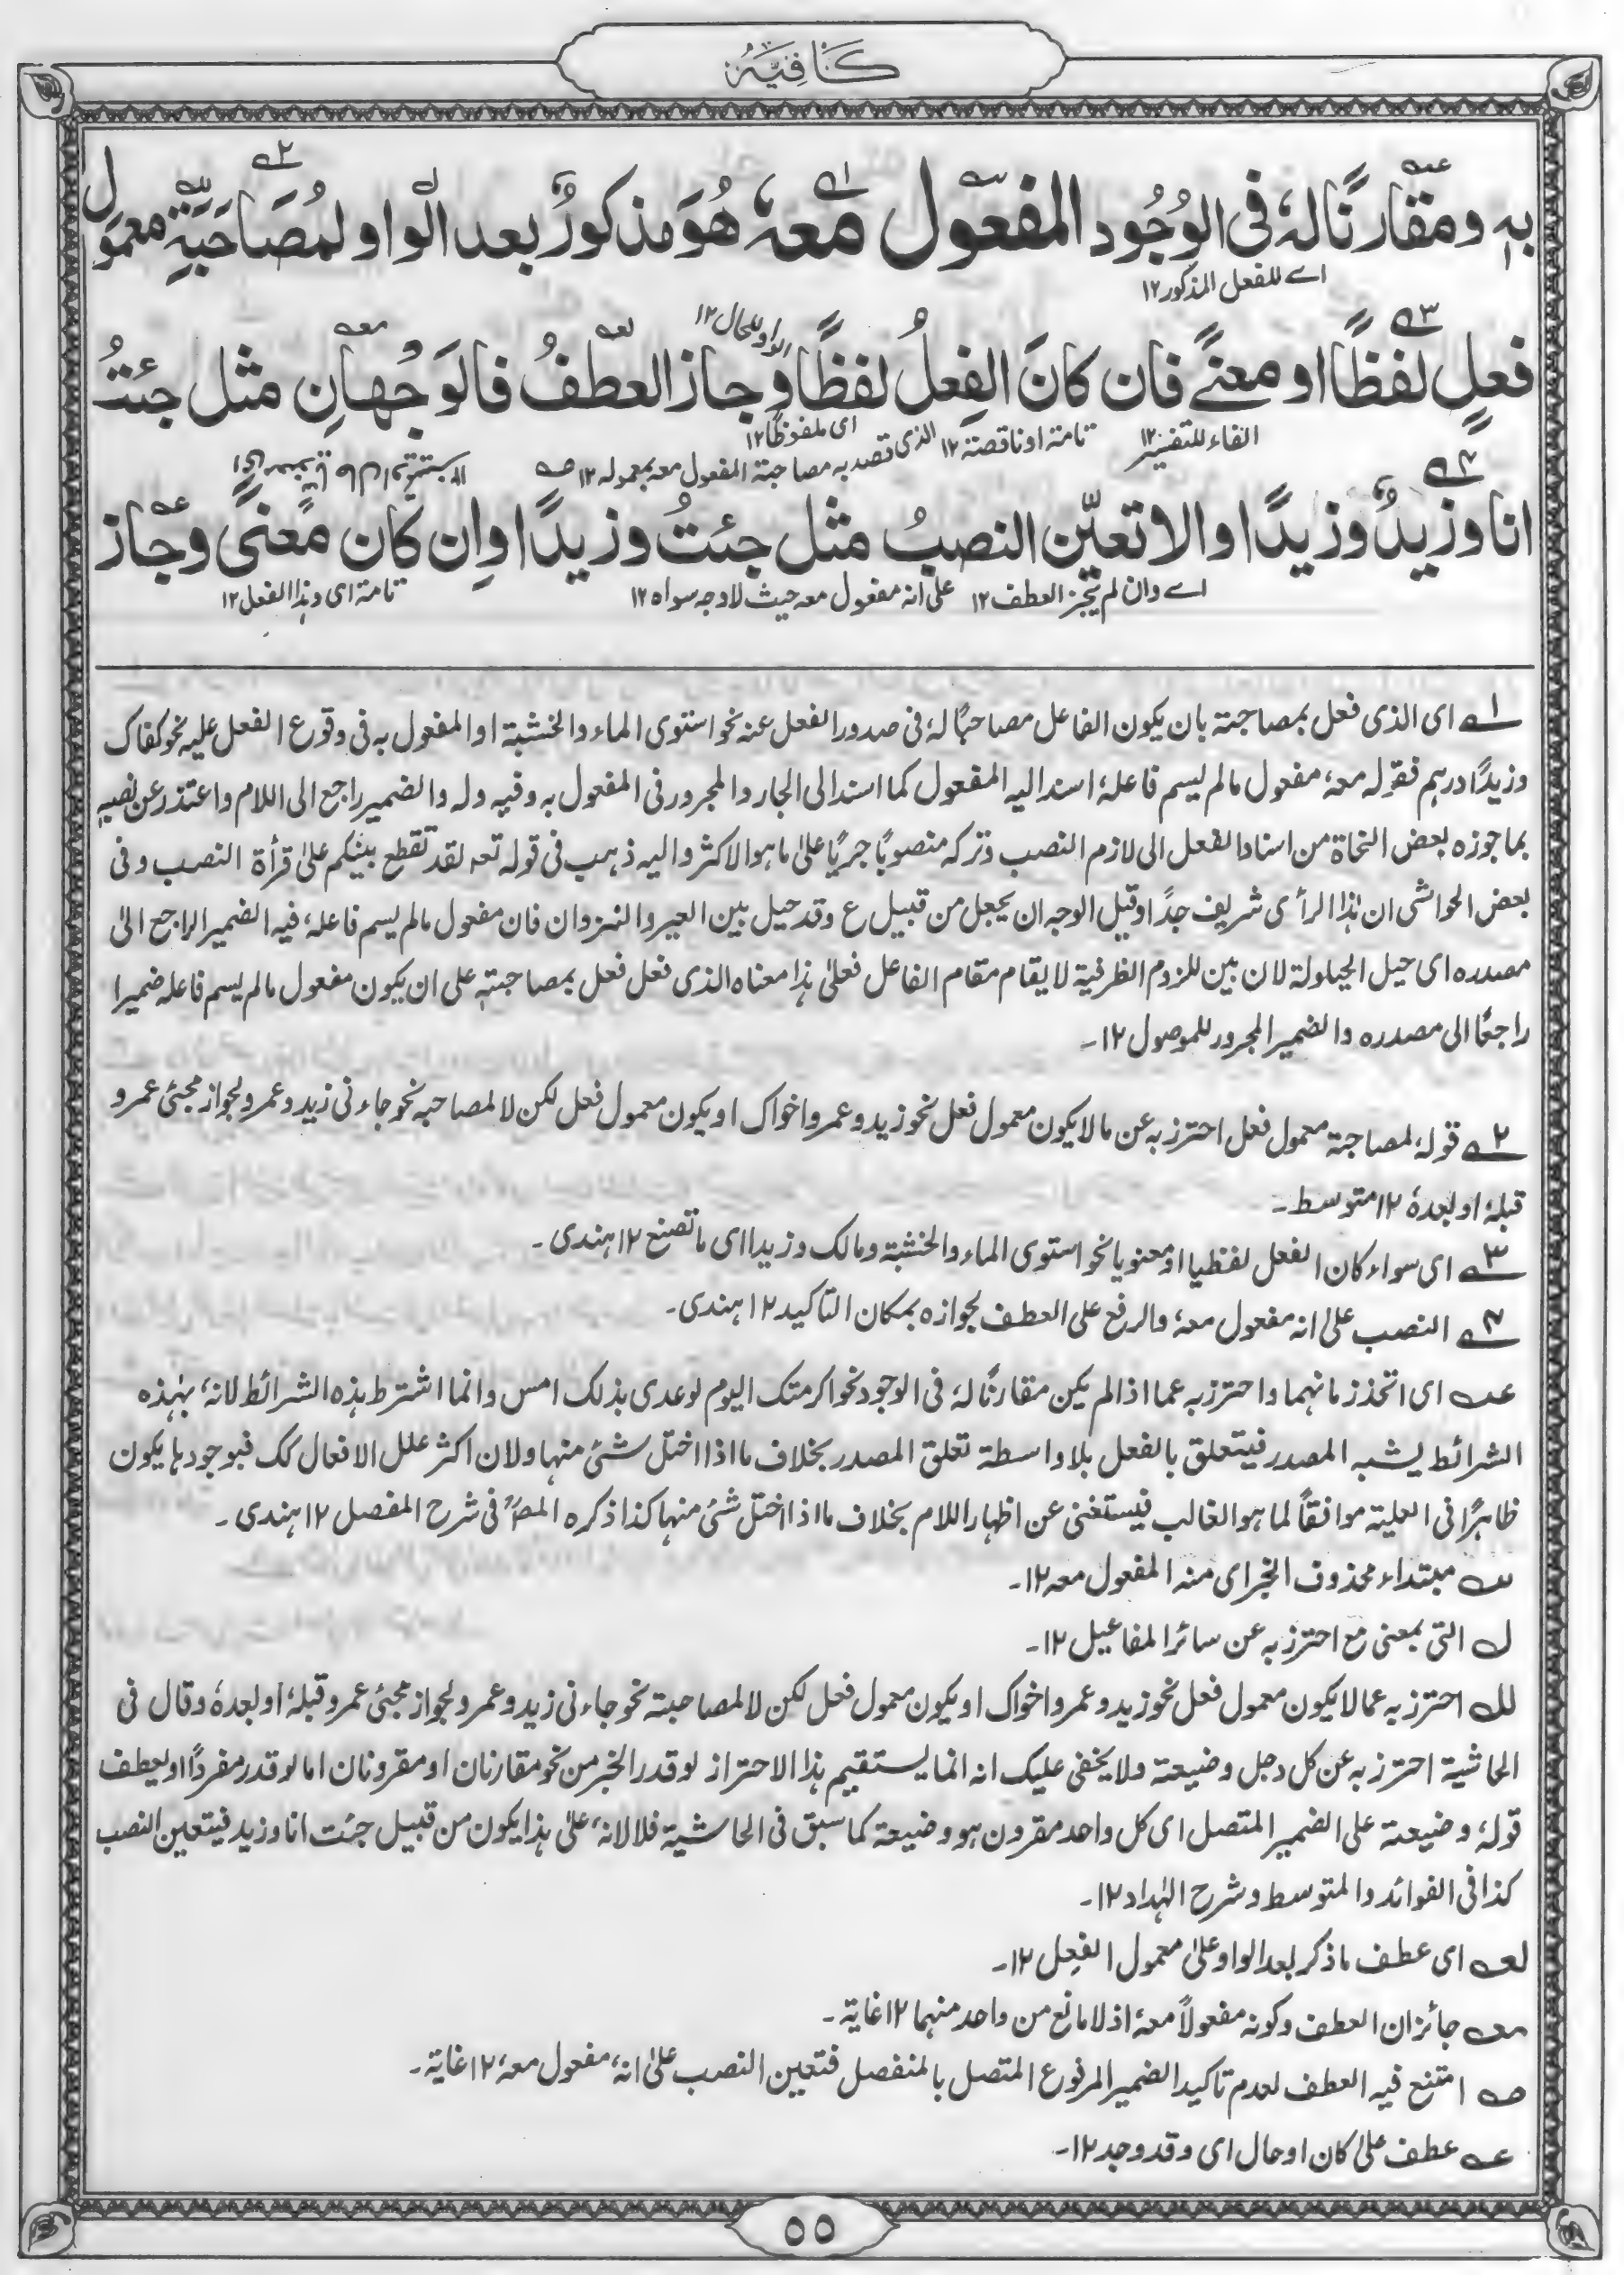 كَافِيَه
بهٖ ومقارنًا لهٗ فى الوُجُود المفعول معهٗ هُوَ مذكورٌ بعد الواو لمُصَاحَبَةِ معمول
اے للفعل المذكور ١٢
الواو للحال ١٢
فعلٍ لفظًا او معنًے فان كانَ الفِعلُ لفظًا وجاز العطفُ فالوَجْهانِ مثل جئتُ
الفاء للتفسير ١٢ تامة او ناقصة ١٢ اى ملفوظًا ١٢
الذى قصد به مصاحبة المفعول معه بمعموله ١٢
انا وزيدٌ وزيدًا والا تعيّن النصبُ مثل جئتُ وزيدًا وان كان معنًى وجاز
اے وان لم يجز العطف ١٢ على انه مفعول معه حيث لا وجه سواه ١٢ تامة اى وهذا الفعل ١٢
١ے اى الذى فعل بمصاحبة بان يكون الفاعل مصاحبًا لهٗ فى صدور الفعل عنه نحو استوى الماء والخشبة او المفعول به فى وقوع الفعل عليه نحو كفاك
وزيدًا درهم فقوله معهٗ مفعول مالم يسم فاعلهٗ اسند اليه المفعول كما اسند الى الجار والمجرور فى المفعول به وفيه وله والضمير راجع الى اللام واعتذر عن نصبهٖ
بما جوزه بعض النحاة من اسناد الفعل الى لازم النصب وتركه منصوبًا جريًا علىٰ ما هو الاكثر واليه ذهب فى قوله تعه لقد تقطع بينكم علىٰ قرأة النصب وفى
بعض الحواشى ان هٰذا الرأى شريف جدًا وقيل الوجه ان يجعل من قبيل ع وقد حيل بين العير والنزوان فان مفعول مالم يسم فاعلهٗ فيه الضمير الراجع الىٰ
مصدره اى حيل الحيلولة لان بين للزوم الظرفية لا يقام مقام الفاعل فعلىٰ هذا معناه الذى فعل فعل بمصاحبتهٖ على ان يكون مفعول مالم يسم فاعله ضميرا
راجعًا الى مصدره والضمير المجرور للموصول ١٢۔
٢ے قولهٗ لمصاحبة معمول فعل احترز به عن ما لا يكون معمول فعل نحو زيد وعمرو اخواك او يكون معمول فعل لكن لا لمصاحبه نحو جاءنى زيد وعمرو لجواز مجئى عمرو
قبلهٗ او بعدهٗ ١٢ متوسط۔
٣ے اى سواء كان الفعل لفظيا او معنويا نحو استوى الماء والخشبة ومالك وزيدا اى ما تصنع ١٢ هندى۔
٤ے النصب علىٰ انه مفعول معهٗ والرفع على العطف لجوازه بمكان التاكيد ١٢ هندى۔
عـه اى اتخذ زمانهما واحترز به عما اذا لم يكن مقارنًا لهٗ فى الوجود نحو اكرمتك اليوم لوعدى بذلك امس وانما اشترط هذه الشرائط لانهٗ بهٰذه
الشرائط يشبه المصدر فيتعلق بالفعل بلا واسطة تعلق المصدر بخلاف ما اذا اختل شئ منها ولان اكثر علل الافعال كك فبوجودها يكون
ظاهرًا فى العلية موافقًا لما هو الغالب فيستغنى عن اظهار اللام بخلاف ما اذا اختل شئ منها كذا ذكره المصؒ فى شرح المفصل ١٢ هندى۔
سـه مبتداء محذوف الخبر اى منه المفعول معه ١٢۔
لـ التى بمعنى مع احترز به عن سائر المفاعيل ١٢۔
للـه احترز به عما لا يكون معمول فعل نحو زيد وعمرو اخواك او يكون معمول فعل لكن لا لمصاحبته نحو جاءنى زيد وعمرو لجواز مجئى عمرو قبلهٗ او بعدهٗ وقال فى
الحاشية احترز به عن كل رجل وضيعته ولا يخفى عليك انه انما يستقيم هذا الاحتراز لو قدر الخبر من نحو مقارنان او مقرونان اما لو قدر مفردًا او يعطف
قولهٗ وضيعته على الضمير المتصل اى كل واحد مقرون هو وضيعته كما سبق فى الحاشية فلا لانهٗ علىٰ هذا يكون من قبيل جئت انا وزيد فيتعين النصب
كذا فى الفوائد والمتوسط وشرح الهداد ١٢۔
لعـه اى عطف ما ذكر بعد الواو علىٰ معمول الفعل ١٢۔
معـه جائزان العطف وكونه مفعولاً معهٗ اذ لا مانع من واحد منهما ١٢ غاية۔
صـه امتنع فيه العطف لعدم تاكيد الضمير المرفوع المتصل بالمنفصل فتعين النصب علىٰ انهٗ مفعول معهٗ ١٢ غاية۔
عـه عطف علىٰ كان او حال اى وقد وجد ١٢۔
٥٥